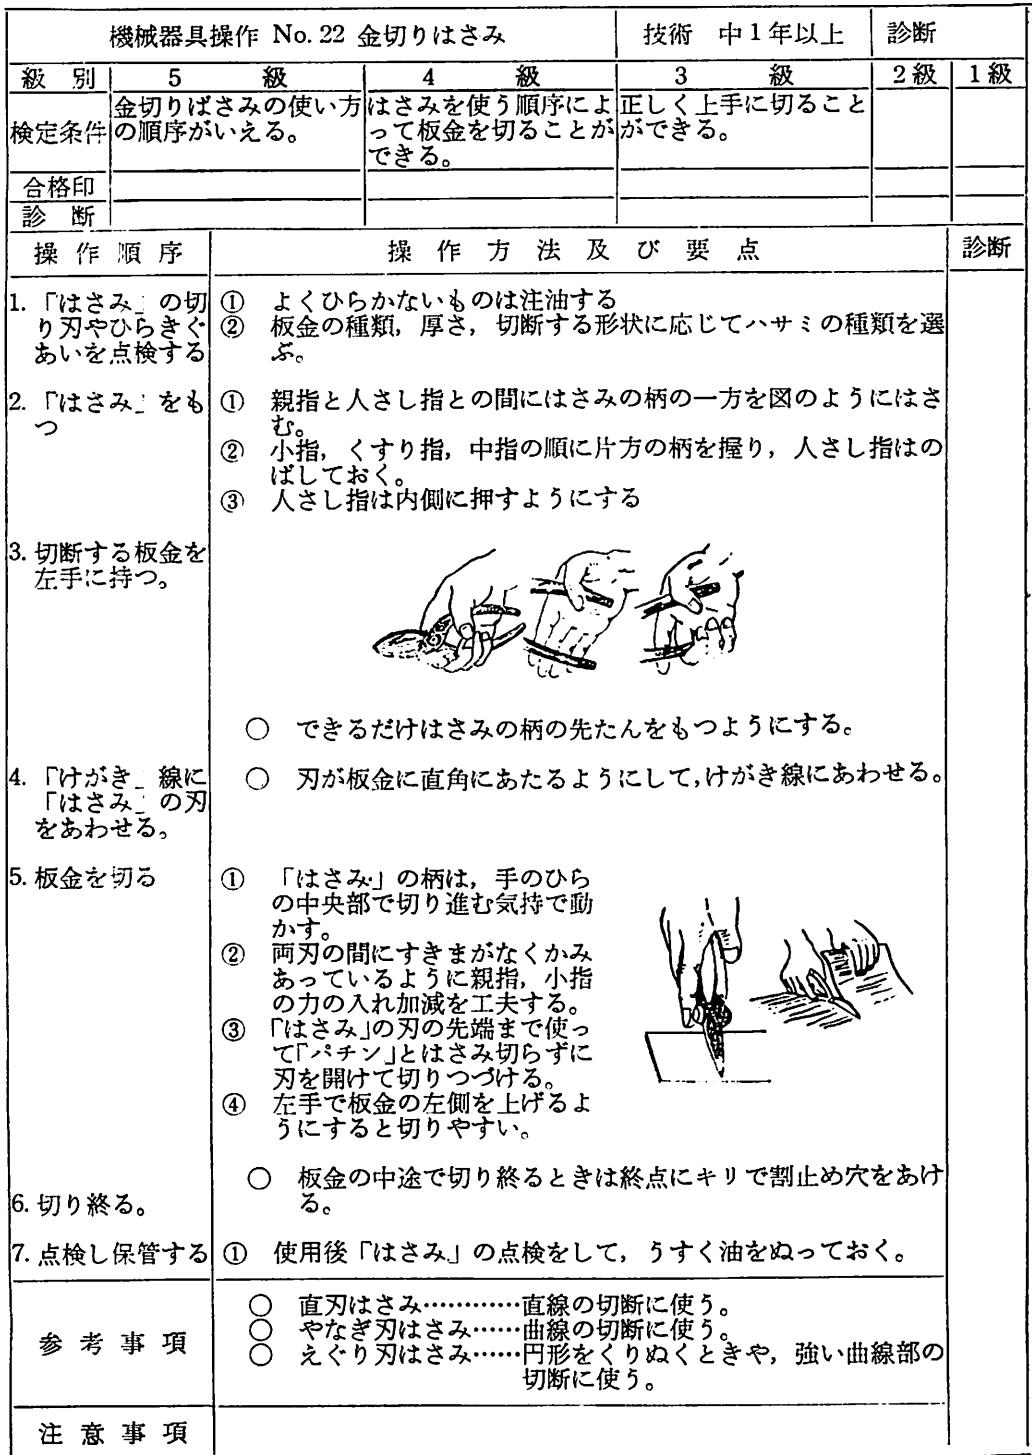 機械器具操作 No. 22 金切りはさみ 技術 中1年以上 診断
級別 5級 4級 3級 2級 1級
検定条件
金切りばさみの使い方
の順序がいえる。
はさみを使う順序によ
って板金を切ることが
できる。
正しく上手に切ること
ができる。
合格印
診断
操作順序 操作方法及び要点 診断
1. 「はさみ」の切
り刃やひらきぐ
あいを点検する
① よくひらかないものは注油する
② 板金の種類，厚さ，切断する形状に応じてハサミの種類を選
ぶ。
2. 「はさみ」をも
つ
① 親指と人さし指との間にはさみの柄の一方を図のようにはさ
む。
② 小指，くすり指，中指の順に片方の柄を握り，人さし指はの
ばしておく。
③ 人さし指は内側に押すようにする
3. 切断する板金を
左手に持つ。
○ できるだけはさみの柄の先たんをもつようにする。
4. 「けがき」線に
「はさみ」の刃
をあわせる。
○ 刃が板金に直角にあたるようにして，けがき線にあわせる。
5. 板金を切る
① 「はさみ」の柄は，手のひら
の中央部で切り進む気持で動
かす。
② 両刃の間にすきまがなくかみ
あっているように親指，小指
の力の入れ加減を工夫する。
③ 「はさみ」の刃の先端まで使っ
て「パチン」とはさみ切らずに
刃を開けて切りつづける。
④ 左手で板金の左側を上げるよ
うにすると切りやすい。
○ 板金の中途で切り終るときは終点にキリで割止め穴をあけ
る。
6. 切り終る。
7. 点検し保管する
① 使用後「はさみ」の点検をして，うすく油をぬっておく。
参考事項
○ 直刃はさみ…………直線の切断に使う。
○ やなぎ刃はさみ……曲線の切断に使う。
○ えぐり刃はさみ……円形をくりぬくときや，強い曲線部の
切断に使う。
注意事項